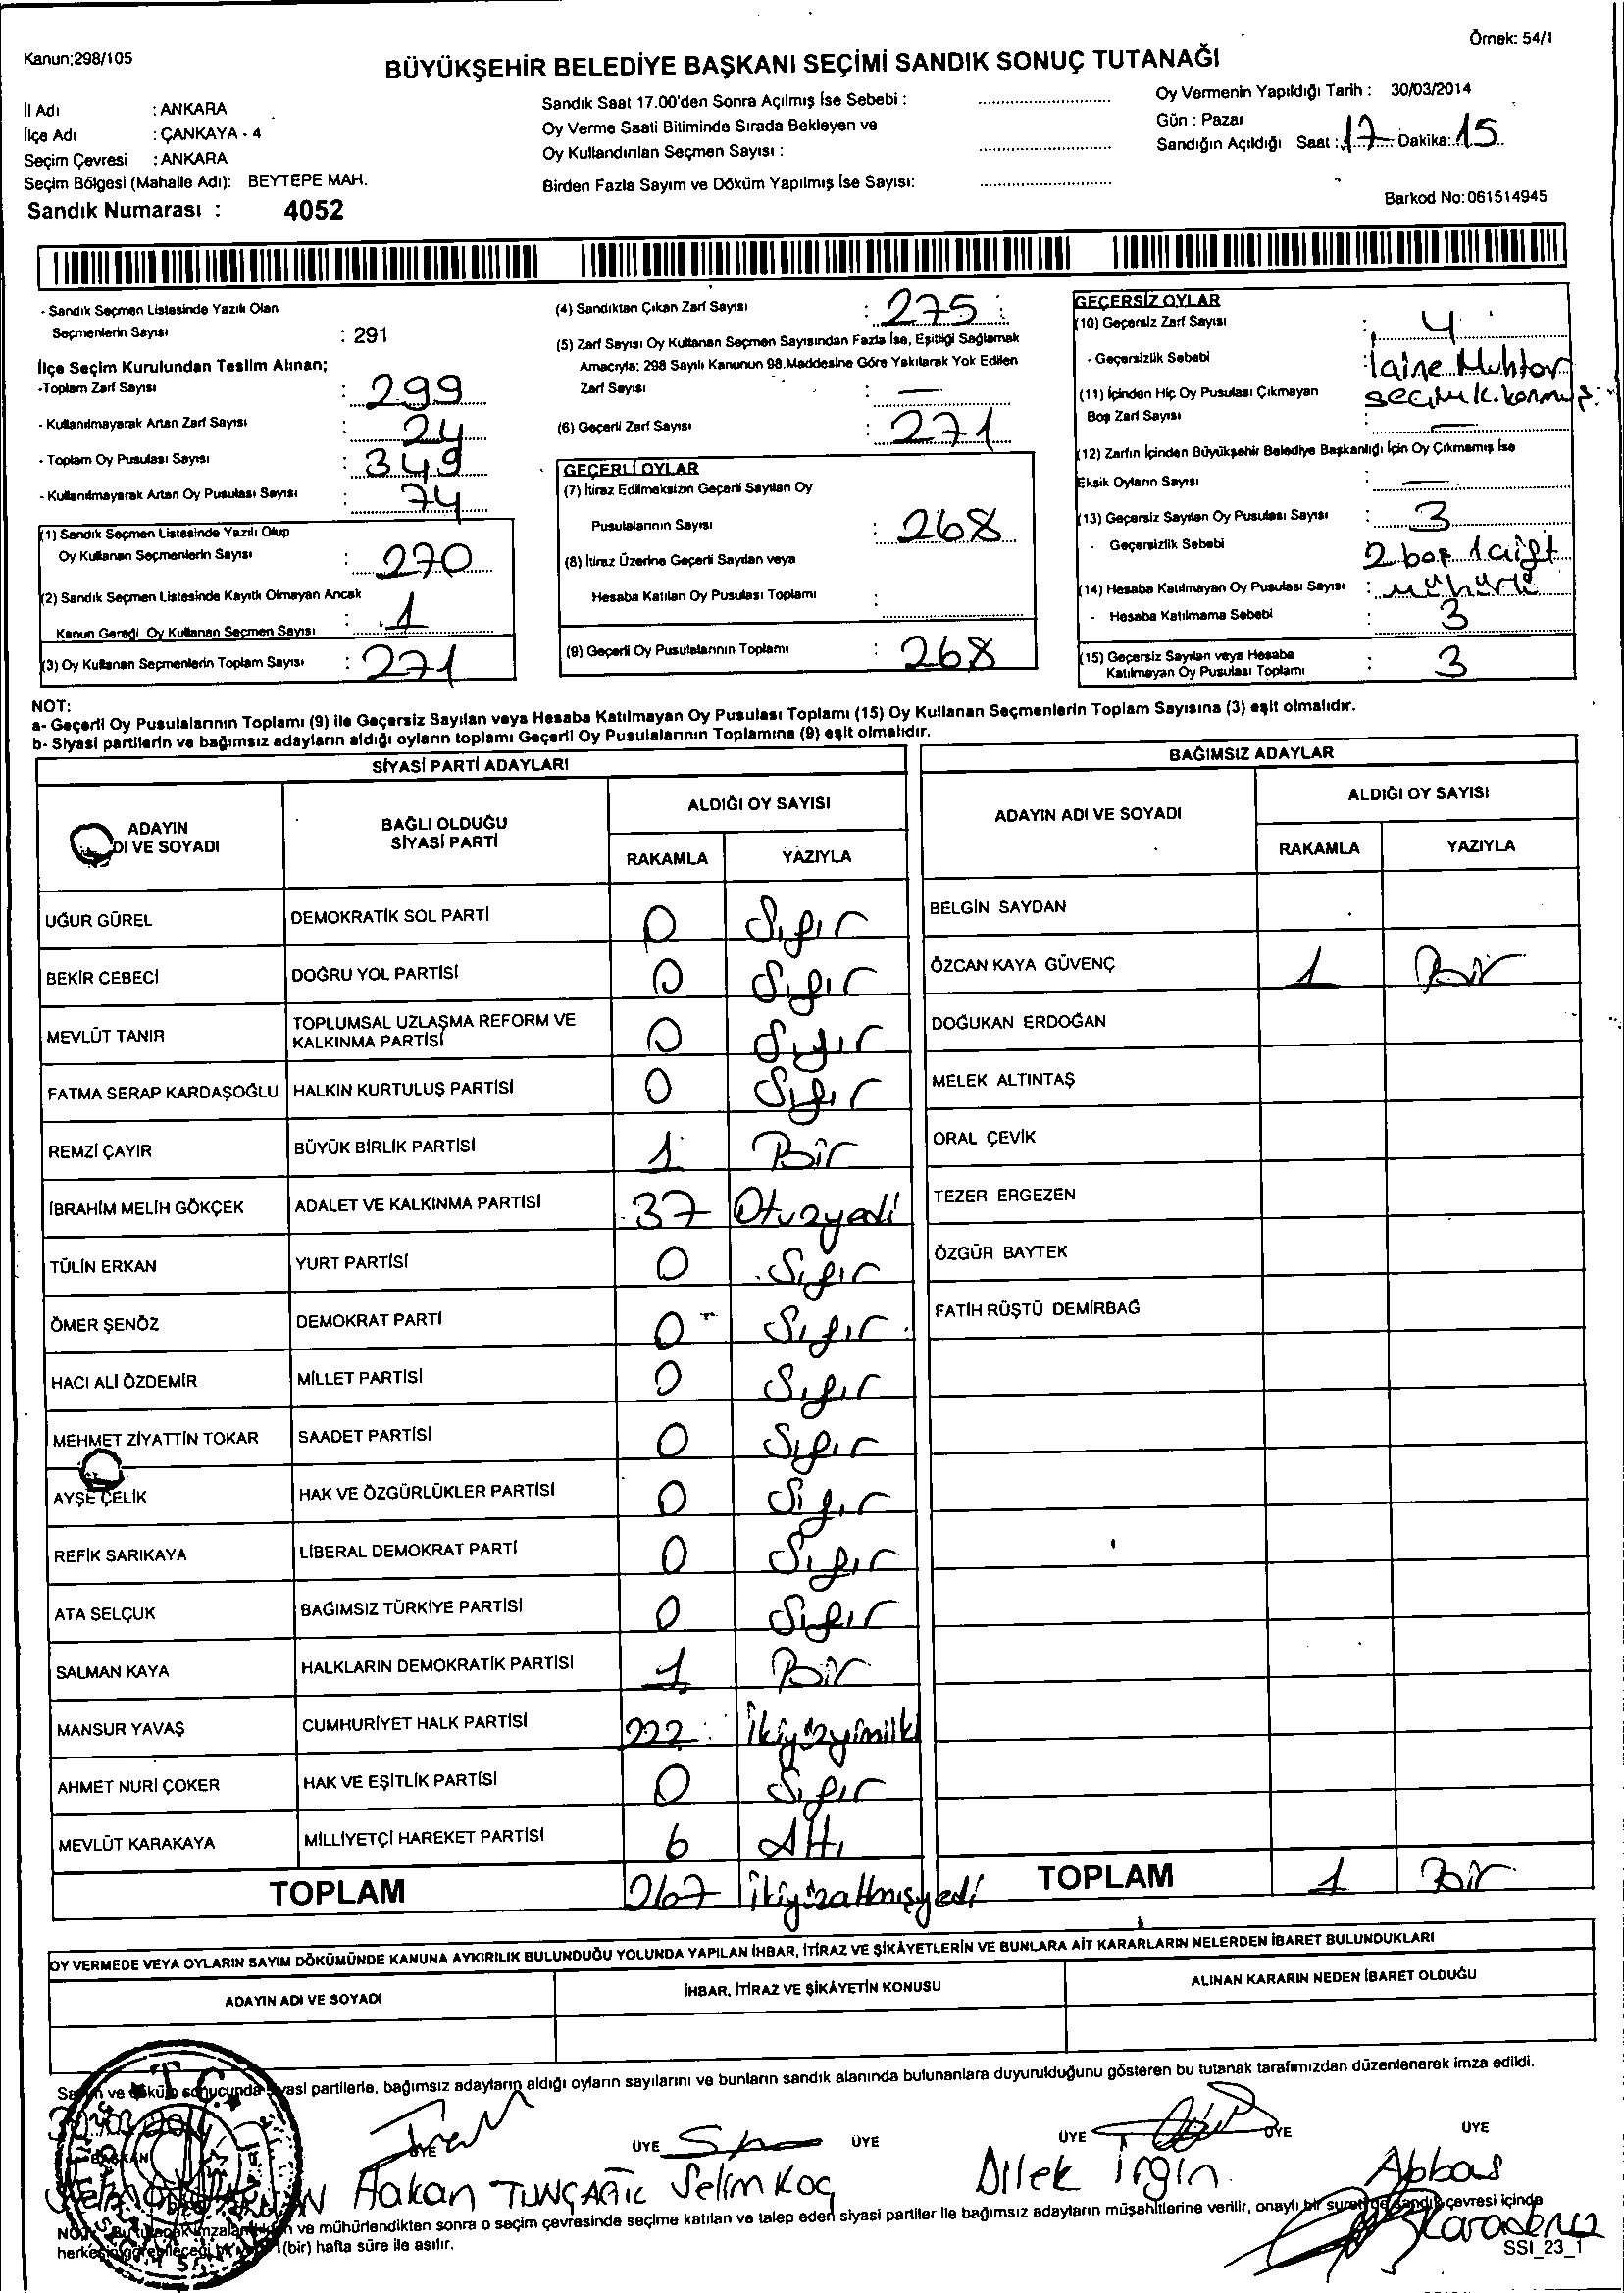 Kanun;298/105
Örnek: 54/1
BÜYÜKŞEHİR BELEDİYE BAŞKANI SEÇİMİ SANDIK SONUÇ TUTANAĞI
İl Adı : ANKARA
İlçe Adı : ÇANKAYA - 4
Seçim Çevresi : ANKARA
Seçim Bölgesi (Mahalle Adı): BEYTEPE MAH.
Sandık Numarası : 4052
Sandık Saat 17.00'den Sonra Açılmış İse Sebebi :
Oy Verme Saati Bitiminde Sırada Bekleyen ve
Oy Kullandırılan Seçmen Sayısı :
Birden Fazla Sayım ve Döküm Yapılmış İse Sayısı:
Oy Vermenin Yapıldığı Tarih : 30/03/2014
Gün : Pazar
Sandığın Açıldığı Saat : 17 Dakika: 15
Barkod No: 061514945
- Sandık Seçmen Listesinde Yazılı Olan
Seçmenlerin Sayısı : 291
İlçe Seçim Kurulundan Teslim Alınan;
-Toplam Zarf Sayısı : 299
- Kullanılmayarak Artan Zarf Sayısı : 24
- Toplam Oy Pusulası Sayısı : 349
- Kullanılmayarak Artan Oy Pusulası Sayısı : 74
(1) Sandık Seçmen Listesinde Yazılı Olup
Oy Kullanan Seçmenlerin Sayısı : 270
(2) Sandık Seçmen Listesinde Kayıtlı Olmayan Ancak
Kanun Gereği Oy Kullanan Seçmen Sayısı : 1
(3) Oy Kullanan Seçmenlerin Toplam Sayısı : 271
(4) Sandıktan Çıkan Zarf Sayısı : 275
(5) Zarf Sayısı Oy Kullanan Seçmen Sayısından Fazla İse, Eşitliği Sağlamak
Amacıyla; 298 Sayılı Kanunun 98.Maddesine Göre Yakılarak Yok Edilen
Zarf Sayısı : —
(6) Geçerli Zarf Sayısı : 271
GEÇERLİ OYLAR
(7) İtiraz Edilmeksizin Geçerli Sayılan Oy
Pusulalarının Sayısı : 268
(8) İtiraz Üzerine Geçerli Sayılan veya
Hesaba Katılan Oy Pusulası Toplamı :
(9) Geçerli Oy Pusulalarının Toplamı : 268
GEÇERSİZ OYLAR
(10) Geçersiz Zarf Sayısı : 4
- Geçersizlik Sebebi : 1 aine Muhtar
(11) İçinden Hiç Oy Pusulası Çıkmayan
Boş Zarf Sayısı : —
(12) Zarfın İçinden Büyükşehir Belediye Başkanlığı İçin Oy Çıkmamış İse
Eksik Oyların Sayısı : —
(13) Geçersiz Sayılan Oy Pusulası Sayısı : 3
- Geçersizlik Sebebi 2 boş 1 çift
mühürlü
(14) Hesaba Katılmayan Oy Pusulası Sayısı :
- Hesaba Katılmama Sebebi : 3
(15) Geçersiz Sayılan veya Hesaba
Katılmayan Oy Pusulası Toplamı : 3
NOT:
a- Geçerli Oy Pusulalarının Toplamı (9) ile Geçersiz Sayılan veya Hesaba Katılmayan Oy Pusulası Toplamı (15) Oy Kullanan Seçmenlerin Toplam Sayısına (3) eşit olmalıdır.
b- Siyasi partilerin ve bağımsız adayların aldığı oyların toplamı Geçerli Oy Pusulalarının Toplamına (9) eşit olmalıdır.
SİYASİ PARTİ ADAYLARI
ADAYIN
DI VE SOYADI
BAĞLI OLDUĞU
SİYASİ PARTİ
ALDIĞI OY SAYISI
RAKAMLA YAZIYLA
UĞUR GÜREL DEMOKRATİK SOL PARTİ 0 Sıfır
BEKİR CEBECİ DOĞRU YOL PARTİSİ 0 Sıfır
MEVLÜT TANIR TOPLUMSAL UZLAŞMA REFORM VE
KALKINMA PARTİSİ 0 Sıfır
FATMA SERAP KARDAŞOĞLU HALKIN KURTULUŞ PARTİSİ 0 Sıfır
REMZİ ÇAYIR BÜYÜK BİRLİK PARTİSİ 1 Bir
İBRAHİM MELİH GÖKÇEK ADALET VE KALKINMA PARTİSİ 37 Otuzyedi
TÜLİN ERKAN YURT PARTİSİ 0 Sıfır
ÖMER ŞENÖZ DEMOKRAT PARTİ 0 Sıfır
HACI ALİ ÖZDEMİR MİLLET PARTİSİ 0 Sıfır
MEHMET ZİYATTİN TOKAR SAADET PARTİSİ 0 Sıfır
AYŞE ÇELİK HAK VE ÖZGÜRLÜKLER PARTİSİ 0 Sıfır
REFİK SARIKAYA LİBERAL DEMOKRAT PARTİ 0 Sıfır
ATA SELÇUK BAĞIMSIZ TÜRKİYE PARTİSİ 0 Sıfır
SALMAN KAYA HALKLARIN DEMOKRATİK PARTİSİ 1 Bir
MANSUR YAVAŞ CUMHURİYET HALK PARTİSİ 222 İkiyüzyimiiki
AHMET NURİ ÇOKER HAK VE EŞİTLİK PARTİSİ 0 Sıfır
MEVLÜT KARAKAYA MİLLİYETÇİ HAREKET PARTİSİ 6 Altı
TOPLAM 267 İkiyüzaltmışyedi
BAĞIMSIZ ADAYLAR
ADAYIN ADI VE SOYADI
ALDIĞI OY SAYISI
RAKAMLA YAZIYLA
BELGİN SAYDAN
ÖZCAN KAYA GÜVENÇ 1 Bir
DOĞUKAN ERDOĞAN
MELEK ALTINTAŞ
ORAL ÇEVİK
TEZER ERGEZEN
ÖZGÜR BAYTEK
FATİH RÜŞTÜ DEMİRBAĞ
TOPLAM 1 Bir
OY VERMEDE VEYA OYLARIN SAYIM DÖKÜMÜNDE KANUNA AYKIRILIK BULUNDUĞU YOLUNDA YAPILAN İHBAR, İTİRAZ VE ŞİKÂYETLERİN VE BUNLARA AİT KARARLARIN NELERDEN İBARET BULUNDUKLARI
ADAYIN ADI VE SOYADI İHBAR, İTİRAZ VE ŞİKÂYETİN KONUSU ALINAN KARARIN NEDEN İBARET OLDUĞU
T.C.
Sayım ve döküm sonucunda siyasi partilerle, bağımsız adayların aldığı oyların sayılarını ve bunların sandık alanında bulunanlara duyurulduğunu gösteren bu tutanak tarafımızdan düzenlenerek imza edildi.
30/03/2014
BAŞKAN ÜYE ÜYE ÜYE ÜYE ÜYE ÜYE
Hakan TUNÇAĞIL Selim Koç Dilek Irgın Abbas
Karadeniz
ve mühürlendikten sonra o seçim çevresinde seçime katılan ve talep eden siyasi partiler ile bağımsız adayların müşahitlerine verilir, onaylı bir sureti de sandık çevresi içinde
(bir) hafta süre ile asılır.
SSI_23_1